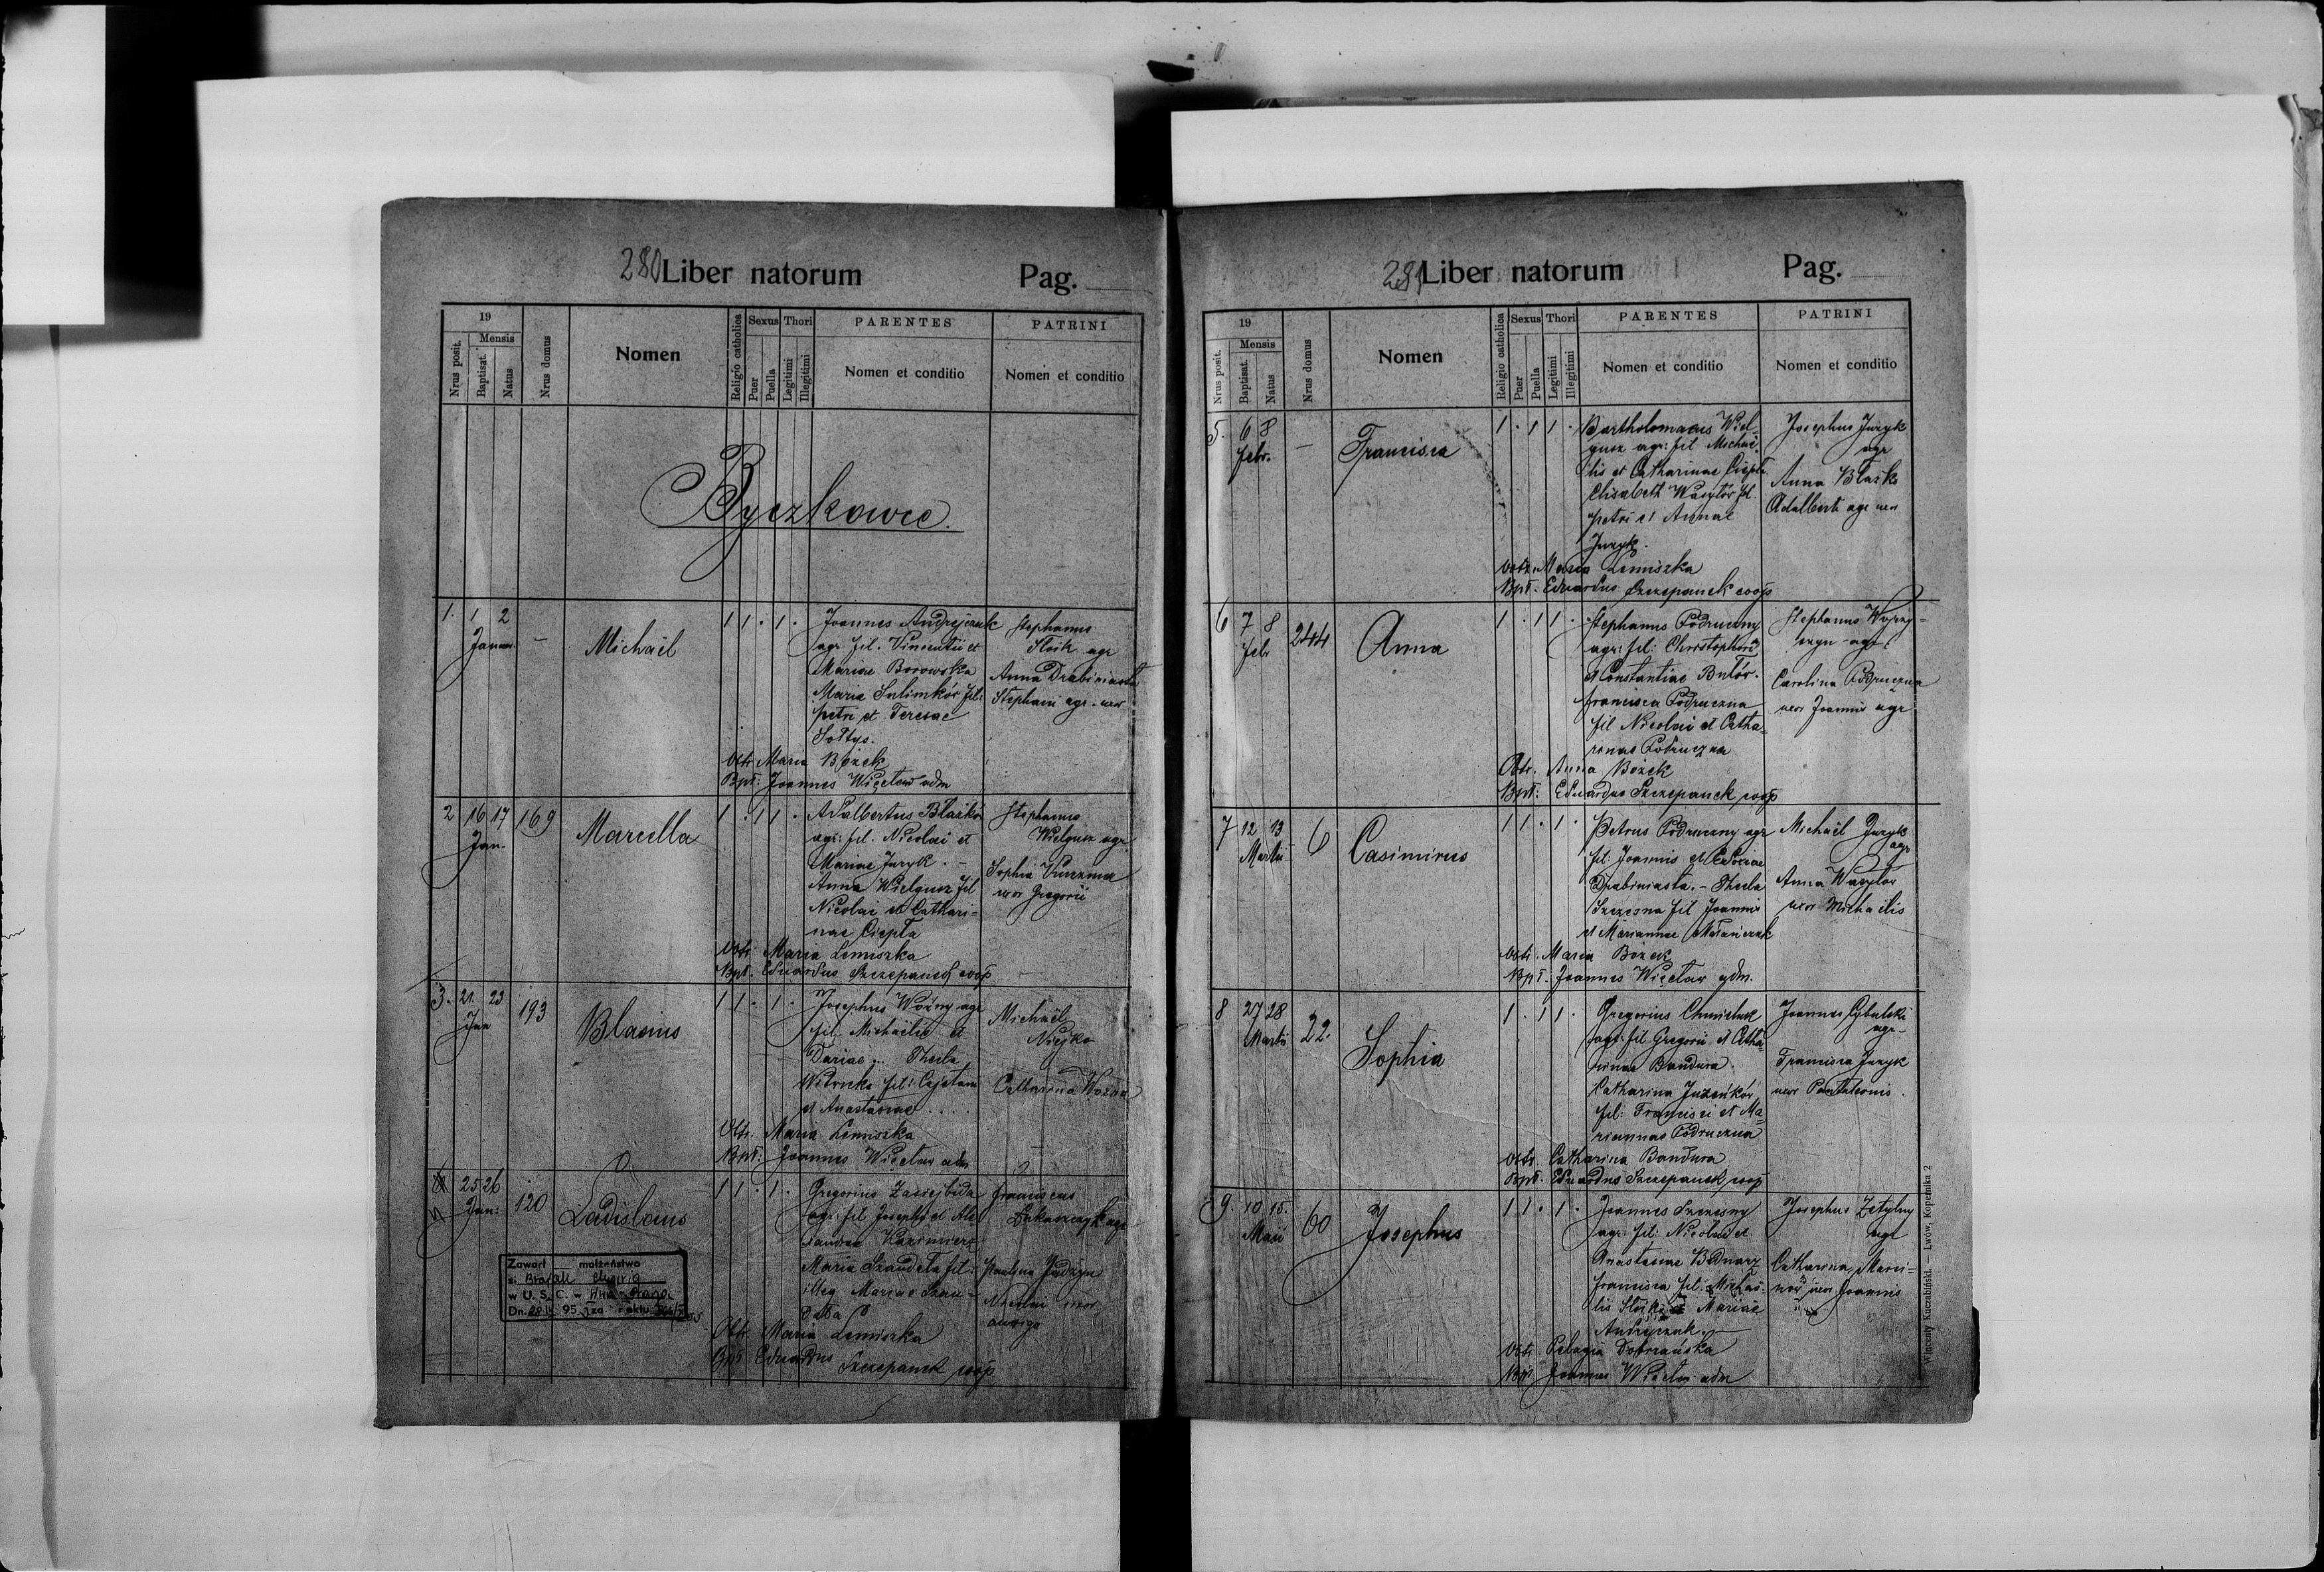 280 Liber natorum Pag.
19
Mensis
Nrus posit.
Baptisat.
Natus
Nrus domus
Nomen
Religio catholica
Sexus
Puer
Puella
Thori
Legitimi
Illegitimi
PARENTES
Nomen et conditio
PATRINI
Nomen et conditio
Byczkowce.
1. 1 2 Januar. —
Michaël
1 1 . 1 .
Joannes Andrejczuk
agr. fil. Vincentii et
Mariae Borowska
Maria Sulimków fil:
Petri et Teresae
Sołtys.
Stephanus
Słoik agr
Anna Drabiniasta
Stephani agr. uxor
Obtr. Maria Bożek
Bpt: Joannes Więcław adm
2 16 17 Jan. 169
Marcella
1 . 1 1 .
Adalbertus Błażków
agr. fil. Nicolai et
Mariae Juzyk. —
Anna Wielgusz fil
Nicolai et Cathari=
nae Ciepła
Stephanus
Wielgusz agr.
Sophia
uxor Gregorii
Obtr. Maria Lemiszka
Bpt. Eduardus Szczepanek coop
3. 21. 23 Jan 193
Blasius
1 1 . 1 .
Josephus Woźny agr
fil. Michaëlis et
Dariae ... Thecla
fil: Cajetani
et Anastasiae ....
Michaël
Niejko
Catharina Woźna
Obtr. Maria Lemiszka
Bpt: Joannes Więcław adm
4 25 26 Jan: 120
Ladislaus
1 1 . 1 .
Gregorius Zasiejbida
agr. fil Josephi et Ale
xandra Kazimierz
Maria Szandała fil:
illeg Mariae Szan=
dała
Franciscus
Łukaszczyk agr
Paulina Judzyn
Nicolai uxor
auriga
Zawarł małżeństwo
w U. S. C. w
Dn. 95 za r aktu
Obtr. Maria Lemiszka
Bpt Eduardus Szczepanek coop
281 Liber natorum Pag.
19
Mensis
Nrus posit.
Baptisat.
Natus
Nrus domus
Nomen
Religio catholica
Sexus
Puer
Puella
Thori
Legitimi
Illegitimi
PARENTES
Nomen et conditio
PATRINI
Nomen et conditio
5. 6 8 Febr. —
Francisca
1 . 1 1 .
Bartholomaeus Wiel
gusz agr: fil Michaë
lis et Catharinae Ciepła
Elisabeth Wasylów fil.
Petri et Annae
Juzyk.
Josephus Juzyk
agr
Anna Błażko
Adalberti agr uxor
Obtr. Maria Lemiszka
Bpt. Eduardus Szczepanek coop
6 7 8 Febr 244
Anna
1 . 1 1 .
Stephanus Podruczny
agr: fil: Christophori
et Constantiae Butór.
Francisca Podruczna
fil Nicolai et Catha=
rinae Podruczna
Stephanus
agr.
Carolina Podruczna
uxor Joannis agr
Obtr. Anna Bożek
Bpt: Eduardus Szczepanek coop
7 12 13 Martii 6
Casimirus
1 1 . 1 .
Petrus Podruczny agr
fil: Joannis et
Drabiniasta. — Thecla
Szczesna fil Joannis
et Mariannae
Michaël Juzyk
agr
Anna Wasylów
uxor Michaëlis
Obtr. Maria Bożek
Bpt. Joannes Więcław adm.
8 27 28 Martii 22
Sophia
1 . 1 1 .
Gregorius Chmieluk
agr: fil Gregorii et Catha=
rinae Bandura.
Catharina Juzeńków
fil: Francisci et Ma=
riannae Podruczna
Joannes Cybulski
agr—
Francisca Juzyk
uxor Pantaleonis.
Obtr. Catharina Bandura
Bpt. Eduardus Szczepanek coop
9. 10 15. Maii 60
Josephus
1 1 . 1 .
Joannes Szczesny
agr. fil: Nicolai et
Anastasiae Bednarz
Francisca fil: Michaë
lis Słojki et Mariae
Andryczuk. —
Josephus Zetylny
agr
Catharina Marci=
nów uxor Joannis
Obtr. Pelagia Dobrzańska
Bpt Joannes Więcław adm
Wincenty Kuczabiński. — Lwów, Kopernika 2